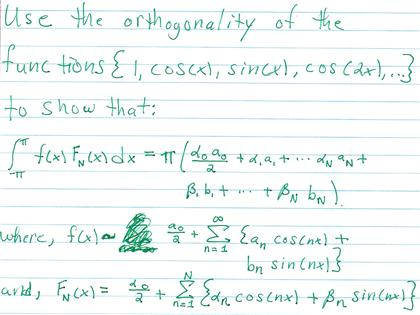 Use the orthogonality of the
functions {1, cos(x), sin(x), cos(2x), ...}
to show that:
∫_{-π}^{π} f(x) F_N(x) dx = π(α₀a₀/2 + α₁a₁ + ... α_N a_N +
β₁b₁ + ... + β_N b_N).
where, f(x) ~ a₀/2 + Σ_{n=1}^{∞} {a_n cos(nx) +
b_n sin(nx)}
and, F_N(x) = α₀/2 + Σ_{n=1}^{N} {α_n cos(nx) + β_n sin(nx)}